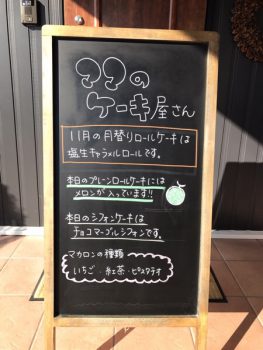 ママの
ケーキ屋さん
11月の月替りロールケーキは
塩生キャラメルロールです。
本日のプレーンロールケーキには
メロンが入っています!!
本日のシフォンケーキは
チョコマーブルシフォンです。
マカロンの種類
いちご・紅茶・ピスタチオ